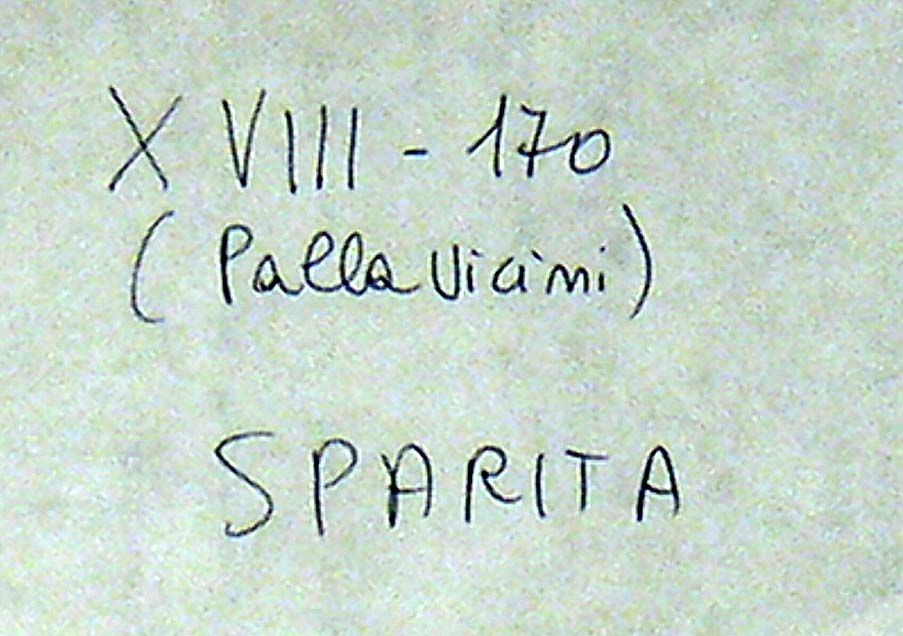 XVIII - 170
(Pallavicini)
SPARITA